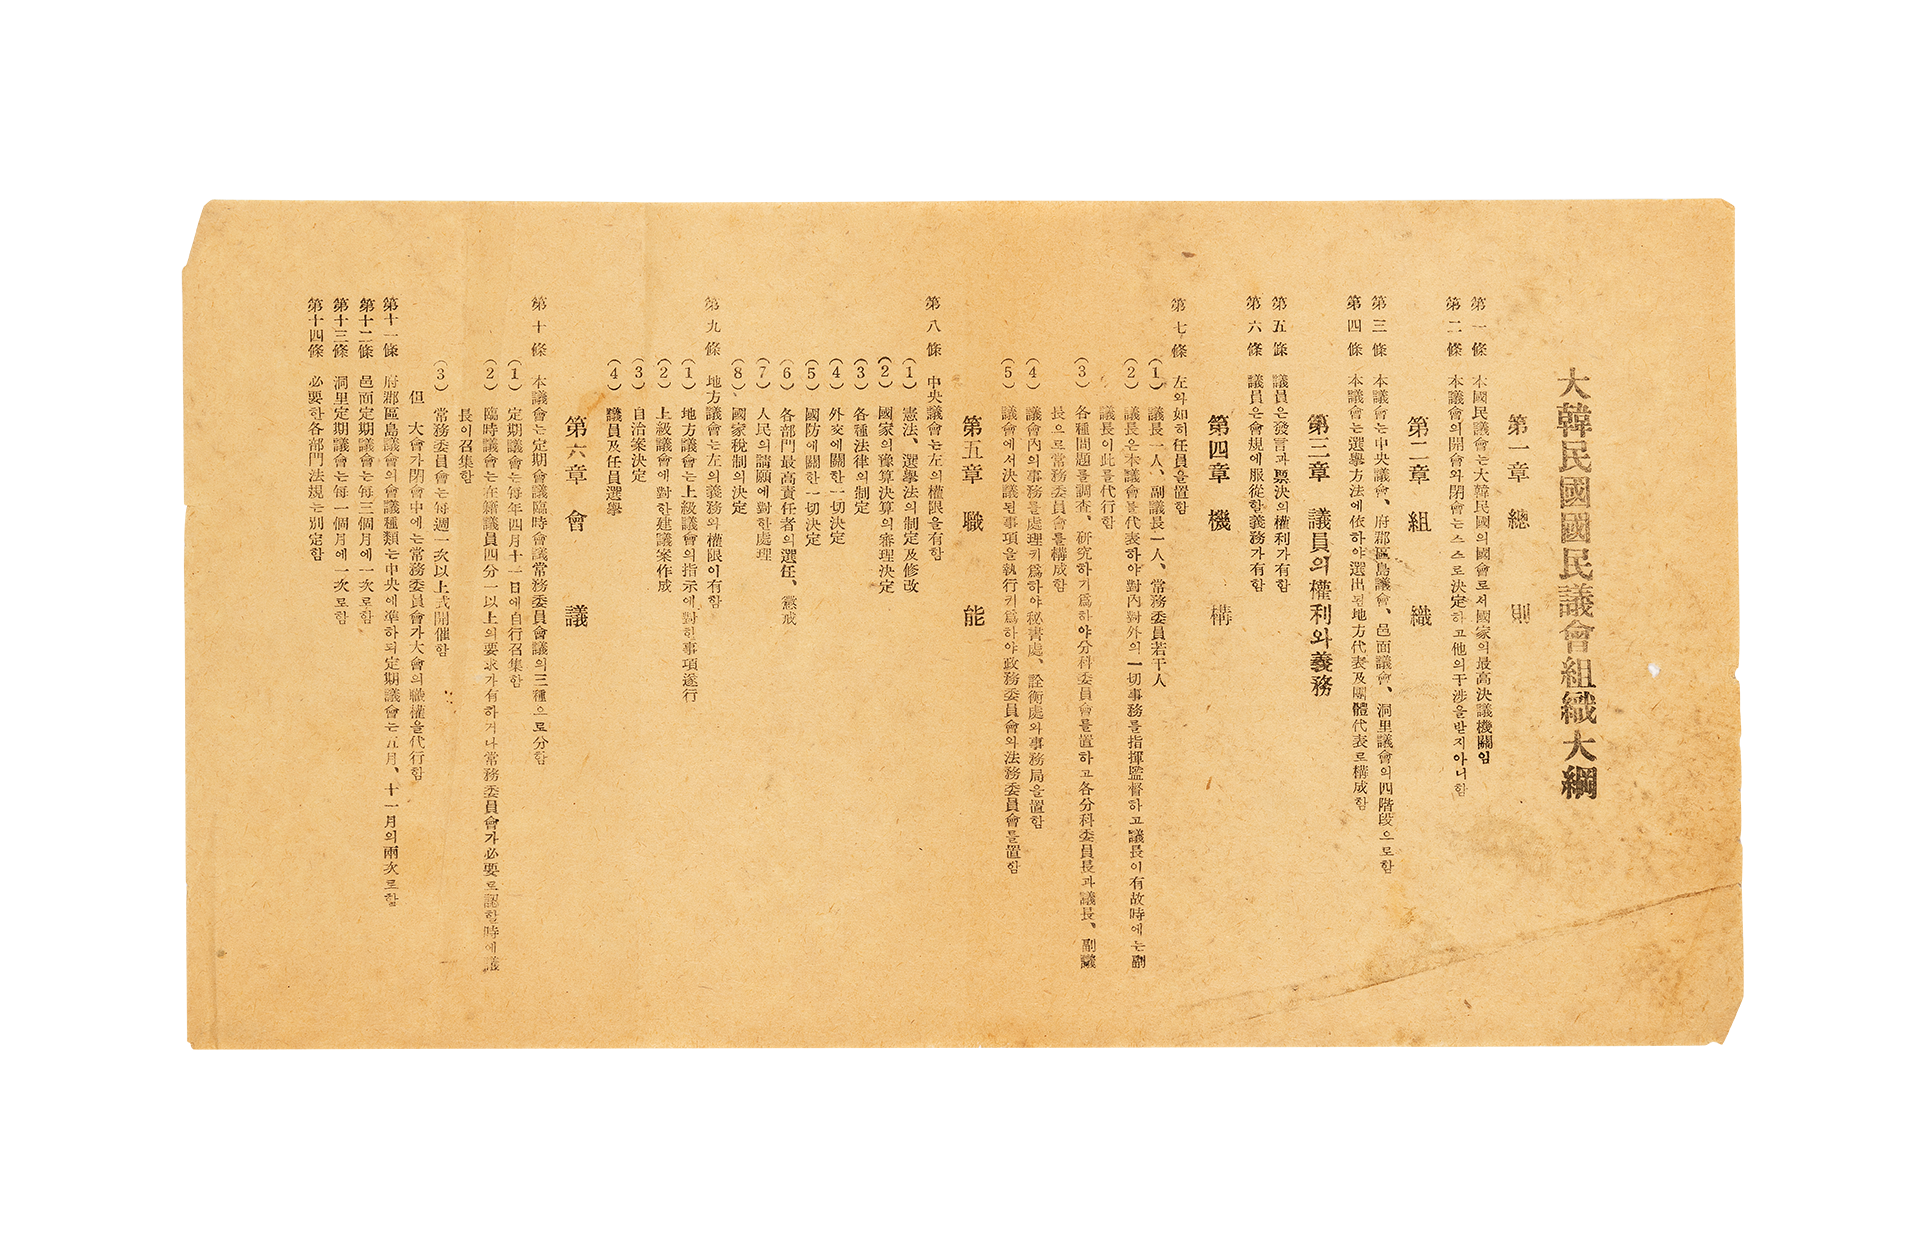 大韓民國國民議會組織大綱
第一章 總 則
第一條 本國民議會는大韓民國의國會로서國家의最高決議機關임
第二條 本議會의開會와閉會는스스로決定하고他의干涉을받지아니함
第二章 組 織
第三條 本議會는中央議會、府郡區島議會、邑面議會、洞里議會의四階段으로함
第四條 本議會는選擧方法에依하야選出된地方代表及團體代表로構成함
第三章 議員의權利와義務
第五條 議員은發言과票決의權利가有함
第六條 議員은會規에服從할義務가有함
第四章 機 構
第七條 左와如히任員을置함
(1) 議長一人、副議長一人、常務委員若干人
(2) 議長은本議會를代表하야對內對外의一切事務를指揮監督하고議長이有故時에는副
議長이此를代行함
(3) 各種問題를調査、硏究하기爲하야分科委員會를置하고各分科委員長과議長、副議
長으로常務委員會를構成함
(4) 議會內의事務를處理키爲하야秘書處、詮衡處와事務局을置함
(5) 議會에서決議된事項을執行키爲하야政務委員會와法務委員會를置함
第五章 職 能
第八條 中央議會는左의權限을有함
(1) 憲法、選擧法의制定及修改
(2) 國家의豫算決算의審理決定
(3) 各種法律의制定
(4) 外交에關한一切決定
(5) 國防에關한一切決定
(6) 各部門最高責任者의選任、懲戒
(7) 人民의請願에對한處理
(8) 國家稅制의決定
第九條 地方議會는左의義務와權限이有함
(1) 地方議會는上級議會의指示에對한事項遂行
(2) 上級議會에對한建議案作成
(3) 自治案決定
(4) 議員及任員選擧
第六章 會 議
第十條 本議會는定期會議臨時會議常務委員會議의三種으로分함
(1) 定期議會는每年四月十一日에自行召集함
(2) 臨時議會는在籍議員四分一以上의要求가有하거나常務委員會가必要로認할時에議
長이召集함
(3) 常務委員會는每週一次以上式開催함
但 大會가閉會中에는常務委員會가大會의職權을代行함
第十一條 府郡區島議會의會議種類는中央에準하되定期議會는五月、十一月의兩次로함
第十二條 邑面定期議會는每三個月에一次로함
第十三條 洞里定期議會는每一個月에一次로함
第十四條 必要한各部門法規는別定함